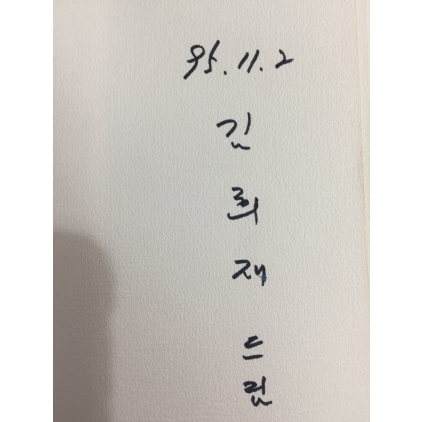 95.11.2
김
희
재
드
림